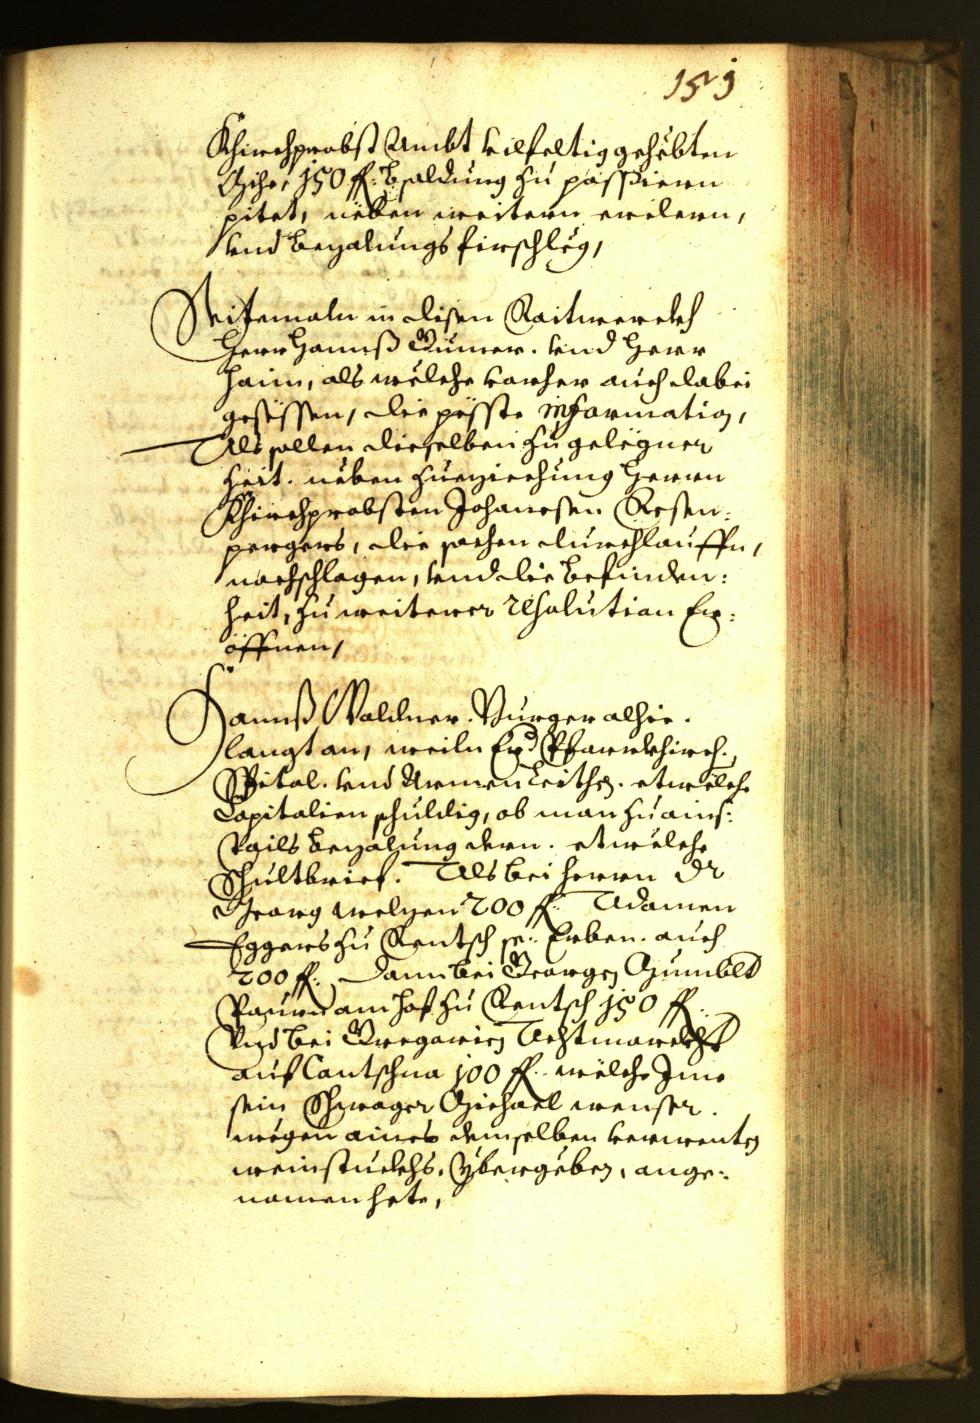 153
Khirchprobst Ambt vilfeltig gehebten
Mihe, 150 f: Bsaldung zu passiern
pitet, neben weitern
vnd bezalungs firschleg,
Seitemaln in disen Raitwerckh
Herr Hannß Rumer. vnd Herr
Haim, als welche vorher auch dabei
gesessen, die peste information,
Als sollen dieselben zu gelegner
Zeit. neben zueziechung Herrn
Khirchprobsten Johanesen Rosen:
pergers, die sachen durchlauffn,
nachschlagen, vnd die befinden:
heit, zu weiterer resolution Er:
öffnen,
Hannß Waldner. Burger alhie.
langt an, weiln Er Pfarrkhirch.,
Spital. vnd Armen Leithen. etweliche
Capitalien schuldig, ob man zu ains:
thails bezalung dern. etweliche
Schultbrief. Als bei Herrn Dr
Georg welzen 200 f: Adamen
Eggers zu Rentsch se: Erben. auch
200 f: Dann bei Georgen Gumbld
Paurn am hof zu Rentsch 150 f:
Vnd bei Gregorien
auf Cantschna 100 f. welche Ime
sein Schwager Michael wenser.
wegen aines demselben verwenten
weinstuckhs. Ybergeben, ange:
namen hete,